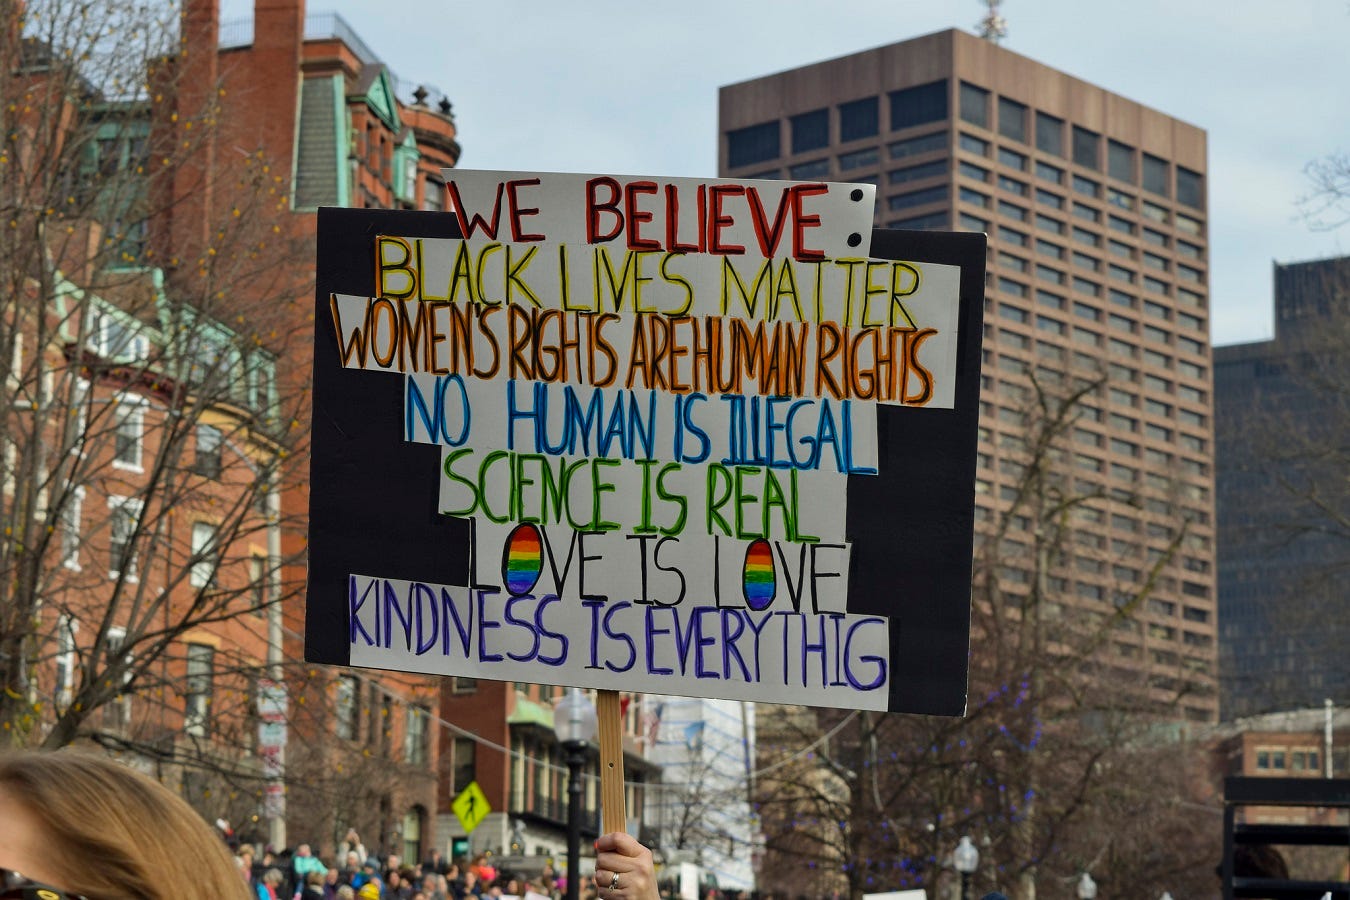 WE BELIEVE:
BLACK LIVES MATTER
WOMEN'S RIGHTS ARE HUMAN RIGHTS
NO HUMAN IS ILLEGAL
SCIENCE IS REAL
LOVE IS LOVE
KINDNESS IS EVERYTHIG